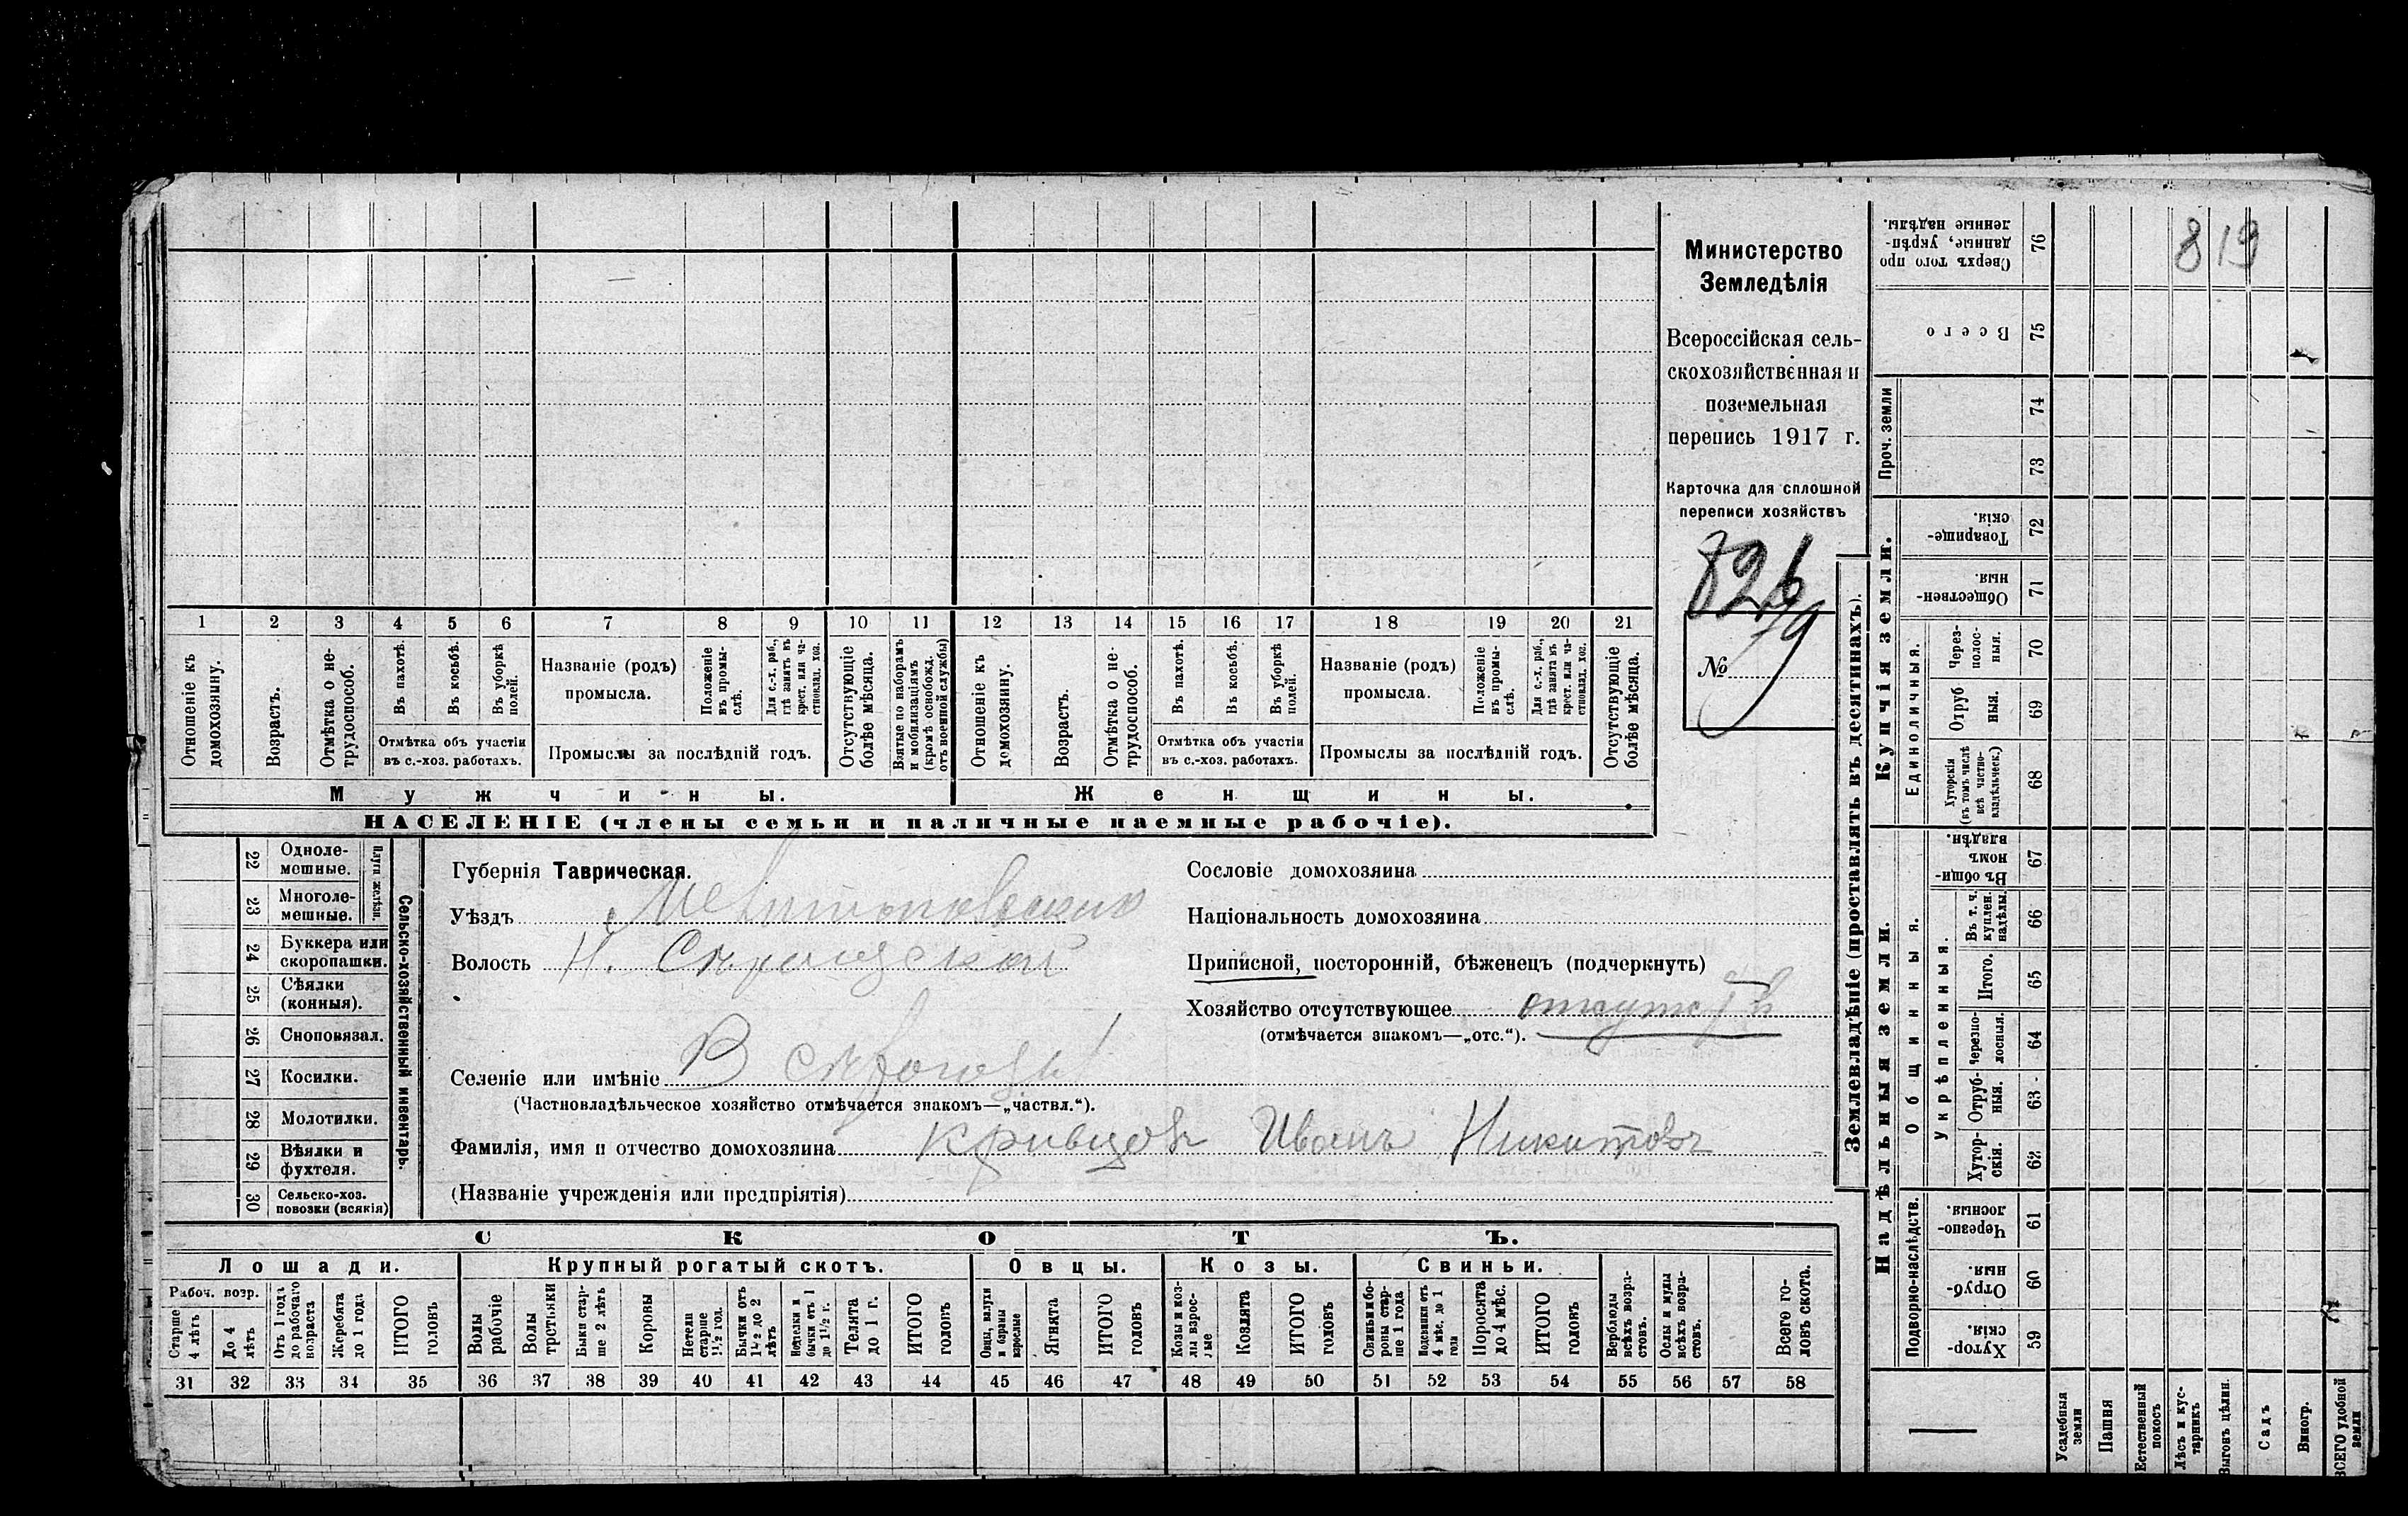 Министерство
Земледѣлія
Всероссійская сель-
скохозяйственная и
поземельная
перепись 1917 г.
Карточка для сплошной
переписи хозяйствъ
826
79
№
819
1 2 3 4 5 6 7 8 9 10 11 12 13 14 15 16 17 18 19 20 21
Отношеніе къ домохозяину.
Возрастъ.
Отмѣтка о не-трудоспособ.
Въ пахотѣ.
Въ косьбѣ.
Въ уборкѣ полей.
Отмѣтка объ участіи
въ с.-хоз. работахъ.
Названіе (родъ)
промысла.
Положеніе въ промы-слѣ.
Для с.-х. раб., гдѣ занятъ въ крест. или ча-стновлад. хоз.
Промыслы за послѣдній годъ.
Отсутствующіе болѣе мѣсяца.
Взятые по наборамъ и мобилизаціямъ (кромѣ освобожд. отъ военной службы)
Отношеніе къ домохозяину.
Возрастъ.
Отмѣтка о не-трудоспособ.
Въ пахотѣ.
Въ косьбѣ.
Въ уборкѣ полей.
Отмѣтка объ участіи
въ с.-хоз. работахъ.
Названіе (родъ)
промысла.
Положеніе въ промы-слѣ.
Для с.-х. раб., гдѣ занята въ крест. или ча-стновлад. хоз.
Промыслы за послѣдній годъ.
Отсутствующіе болѣе мѣсяца.
Мужчины. Женщины.
НАСЕЛЕНІЕ (члены семьи и наличные наемные рабочіе).
22 Одноле-мешные.
23 Многоле-мешные.
Плуги желѣзн.
24 Буккера или скоропашки.
25 Сѣялки (конныя).
26 Сноповязал.
27 Косилки.
28 Молотилки.
29 Вѣялки и фухтеля.
30 Сельско-хоз. повозки (всякія)
Сельско-хозяйственный инвентарь.
Губернія Таврическая.
Уѣздъ Мелитопольскій
Волость Н. Сѣрогозской
Селеніе или имѣніе В Сѣрогозы
(Частновладѣльческое хозяйство отмѣчается знакомъ—„частвл.“).
Фамилія, имя и отчество домохозяина Кривцовъ Иванъ Никитовъ
(Названіе учрежденія или предпріятія)
Сословіе домохозяина
Національность домохозяина
Приписной, посторонній, бѣженецъ (подчеркнуть)
Хозяйство отсутствующее
(отмѣчается знакомъ—„отс.“).
СКОТЪ.
Лошади. Крупный рогатый скотъ. Овцы. Козы. Свиньи.
Рабоч. возр.
Старше 4 лѣтъ
До 4 лѣтъ
Отъ 1 года до рабочаго возраста
Жеребята до 1 года
ИТОГО головъ
Волы рабочіе
Волы трстьяки
Быки стар-ше 2 лѣтъ
Коровы
Нетели старше 1½ год.
Бычки отъ 1½ до 2 лѣтъ
бычки отъ 1 до 1½ г.
Телята до 1 г.
ИТОГО головъ
Овцы, валухи и бараны взрослые
Ягнята
ИТОГО головъ
Козы и коз-лы взрос-лые
Козлята
ИТОГО головъ
Свиньи и бо-ровы стар-ше 1 года
Подсвинки отъ 4 мѣс. до 1 года
Поросята до 4 мѣс.
ИТОГО головъ
Верблюды всѣхъ возра-стовъ.
Ослы и мулы всѣхъ возра-стовъ.
Всего го-ловъ скота.
31 32 33 34 35 36 37 38 39 40 41 42 43 44 45 46 47 48 49 50 51 52 53 54 55 56 57 58
Землевладѣніе (проставлять въ десятинахъ).
Надѣльныя земли.
Купчія земли.
Проч. земли
Подворно-наслѣдств.
Общинныя.
Укрѣпленныя.
Единоличныя.
Сверхъ того про данные, укрѣп-ленные надѣлы. 76
Всего 75
74
73
Товарище-скія. 72
Обществен-ныя. 71
Через-полос-ныя. 70
Отруб ныя. 69
Хуторскія (въ томъ числѣ всѣ частно-владѣльческ.) 68
Въ общи-номъ владѣн. 67
Въ т. ч. куплен. надѣлы 66
Итого. 65
Черезпо-лосныя. 64
Отруб-ныя. 63
Хутор-скія. 62
Черезпо-лосныя. 61
Отруб-ныя. 60
Хутор-скія. 59
Усадебныя земли
Пашня
Естественный покосъ
Лѣсъ и кус-тарникъ
Выгонъ цѣлин.
Садъ
Виногр.
ВСЕГО удобной земли